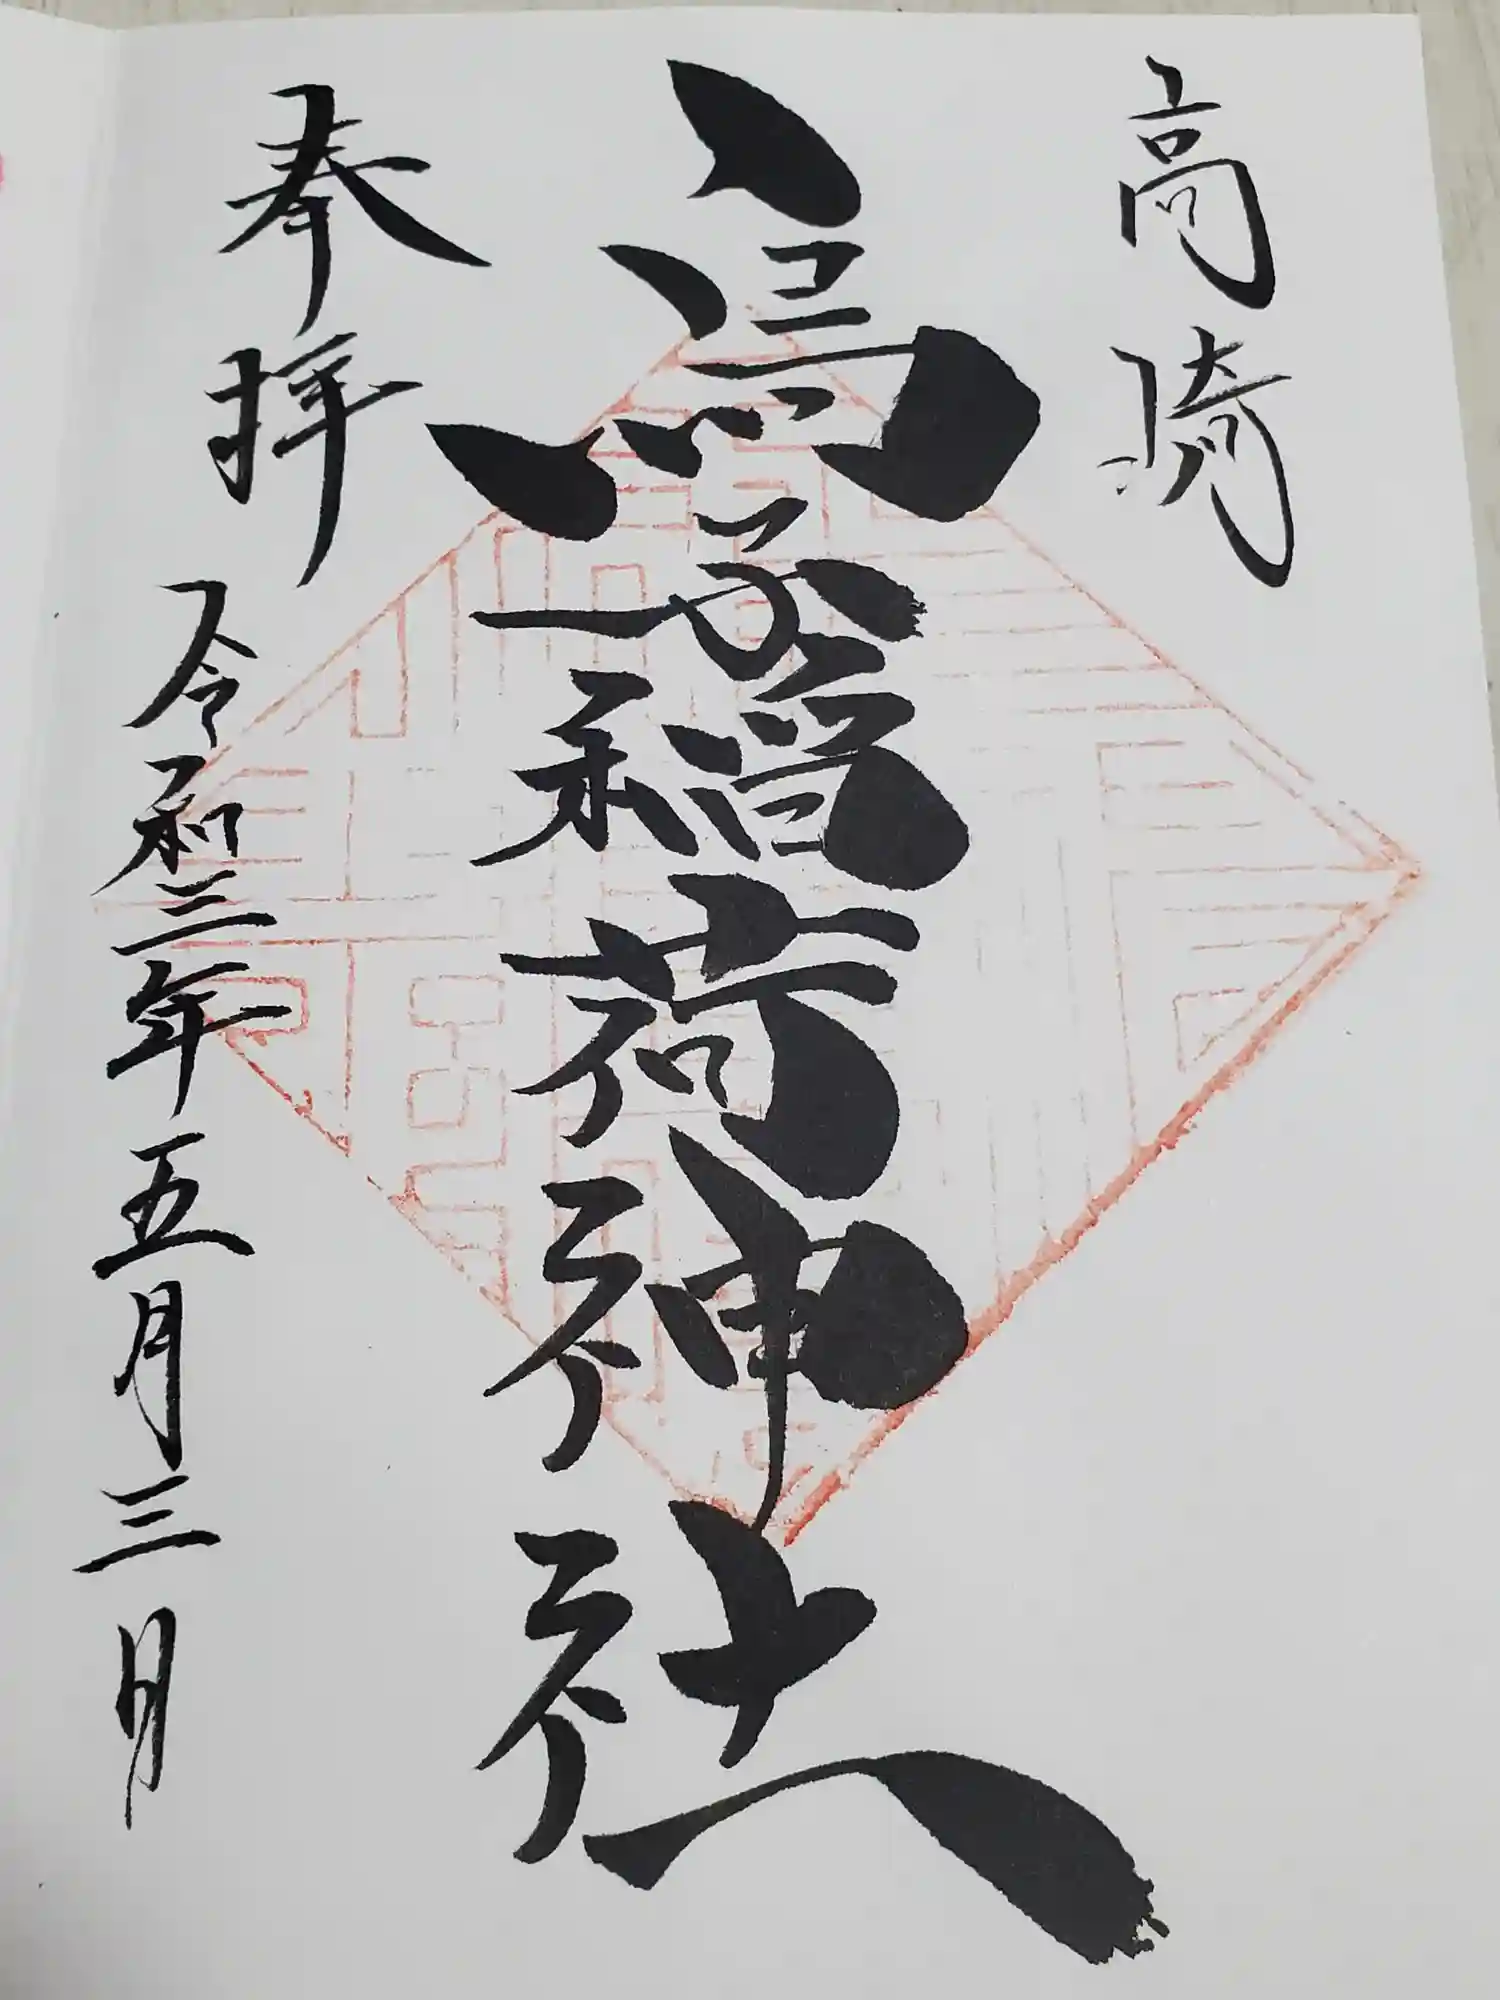 高﨑
烏子稲荷神社
奉拝
令和三年五月三日